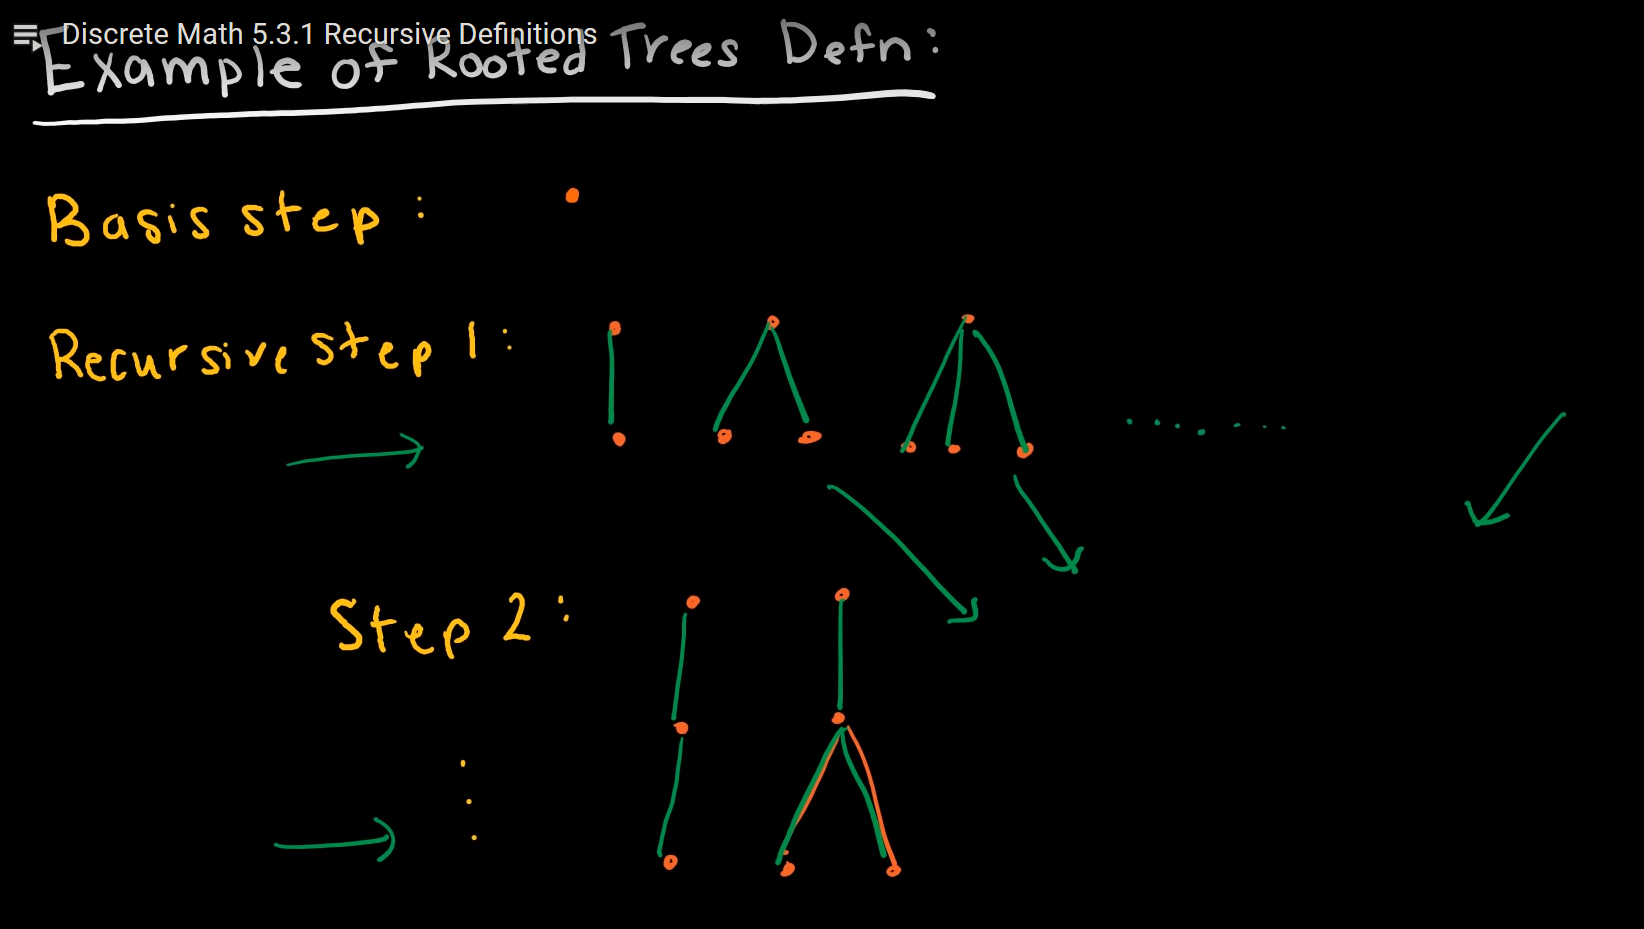 Discrete Math 5.3.1 Recursive Definitions
Example of Rooted Trees Defn:
Basis step:
Recursive step 1:
Step 2: